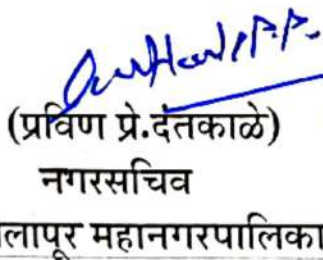 (प्रविण प्रे.दंतकाळे)
नगरसचिव
लापूर महानगरपालिका